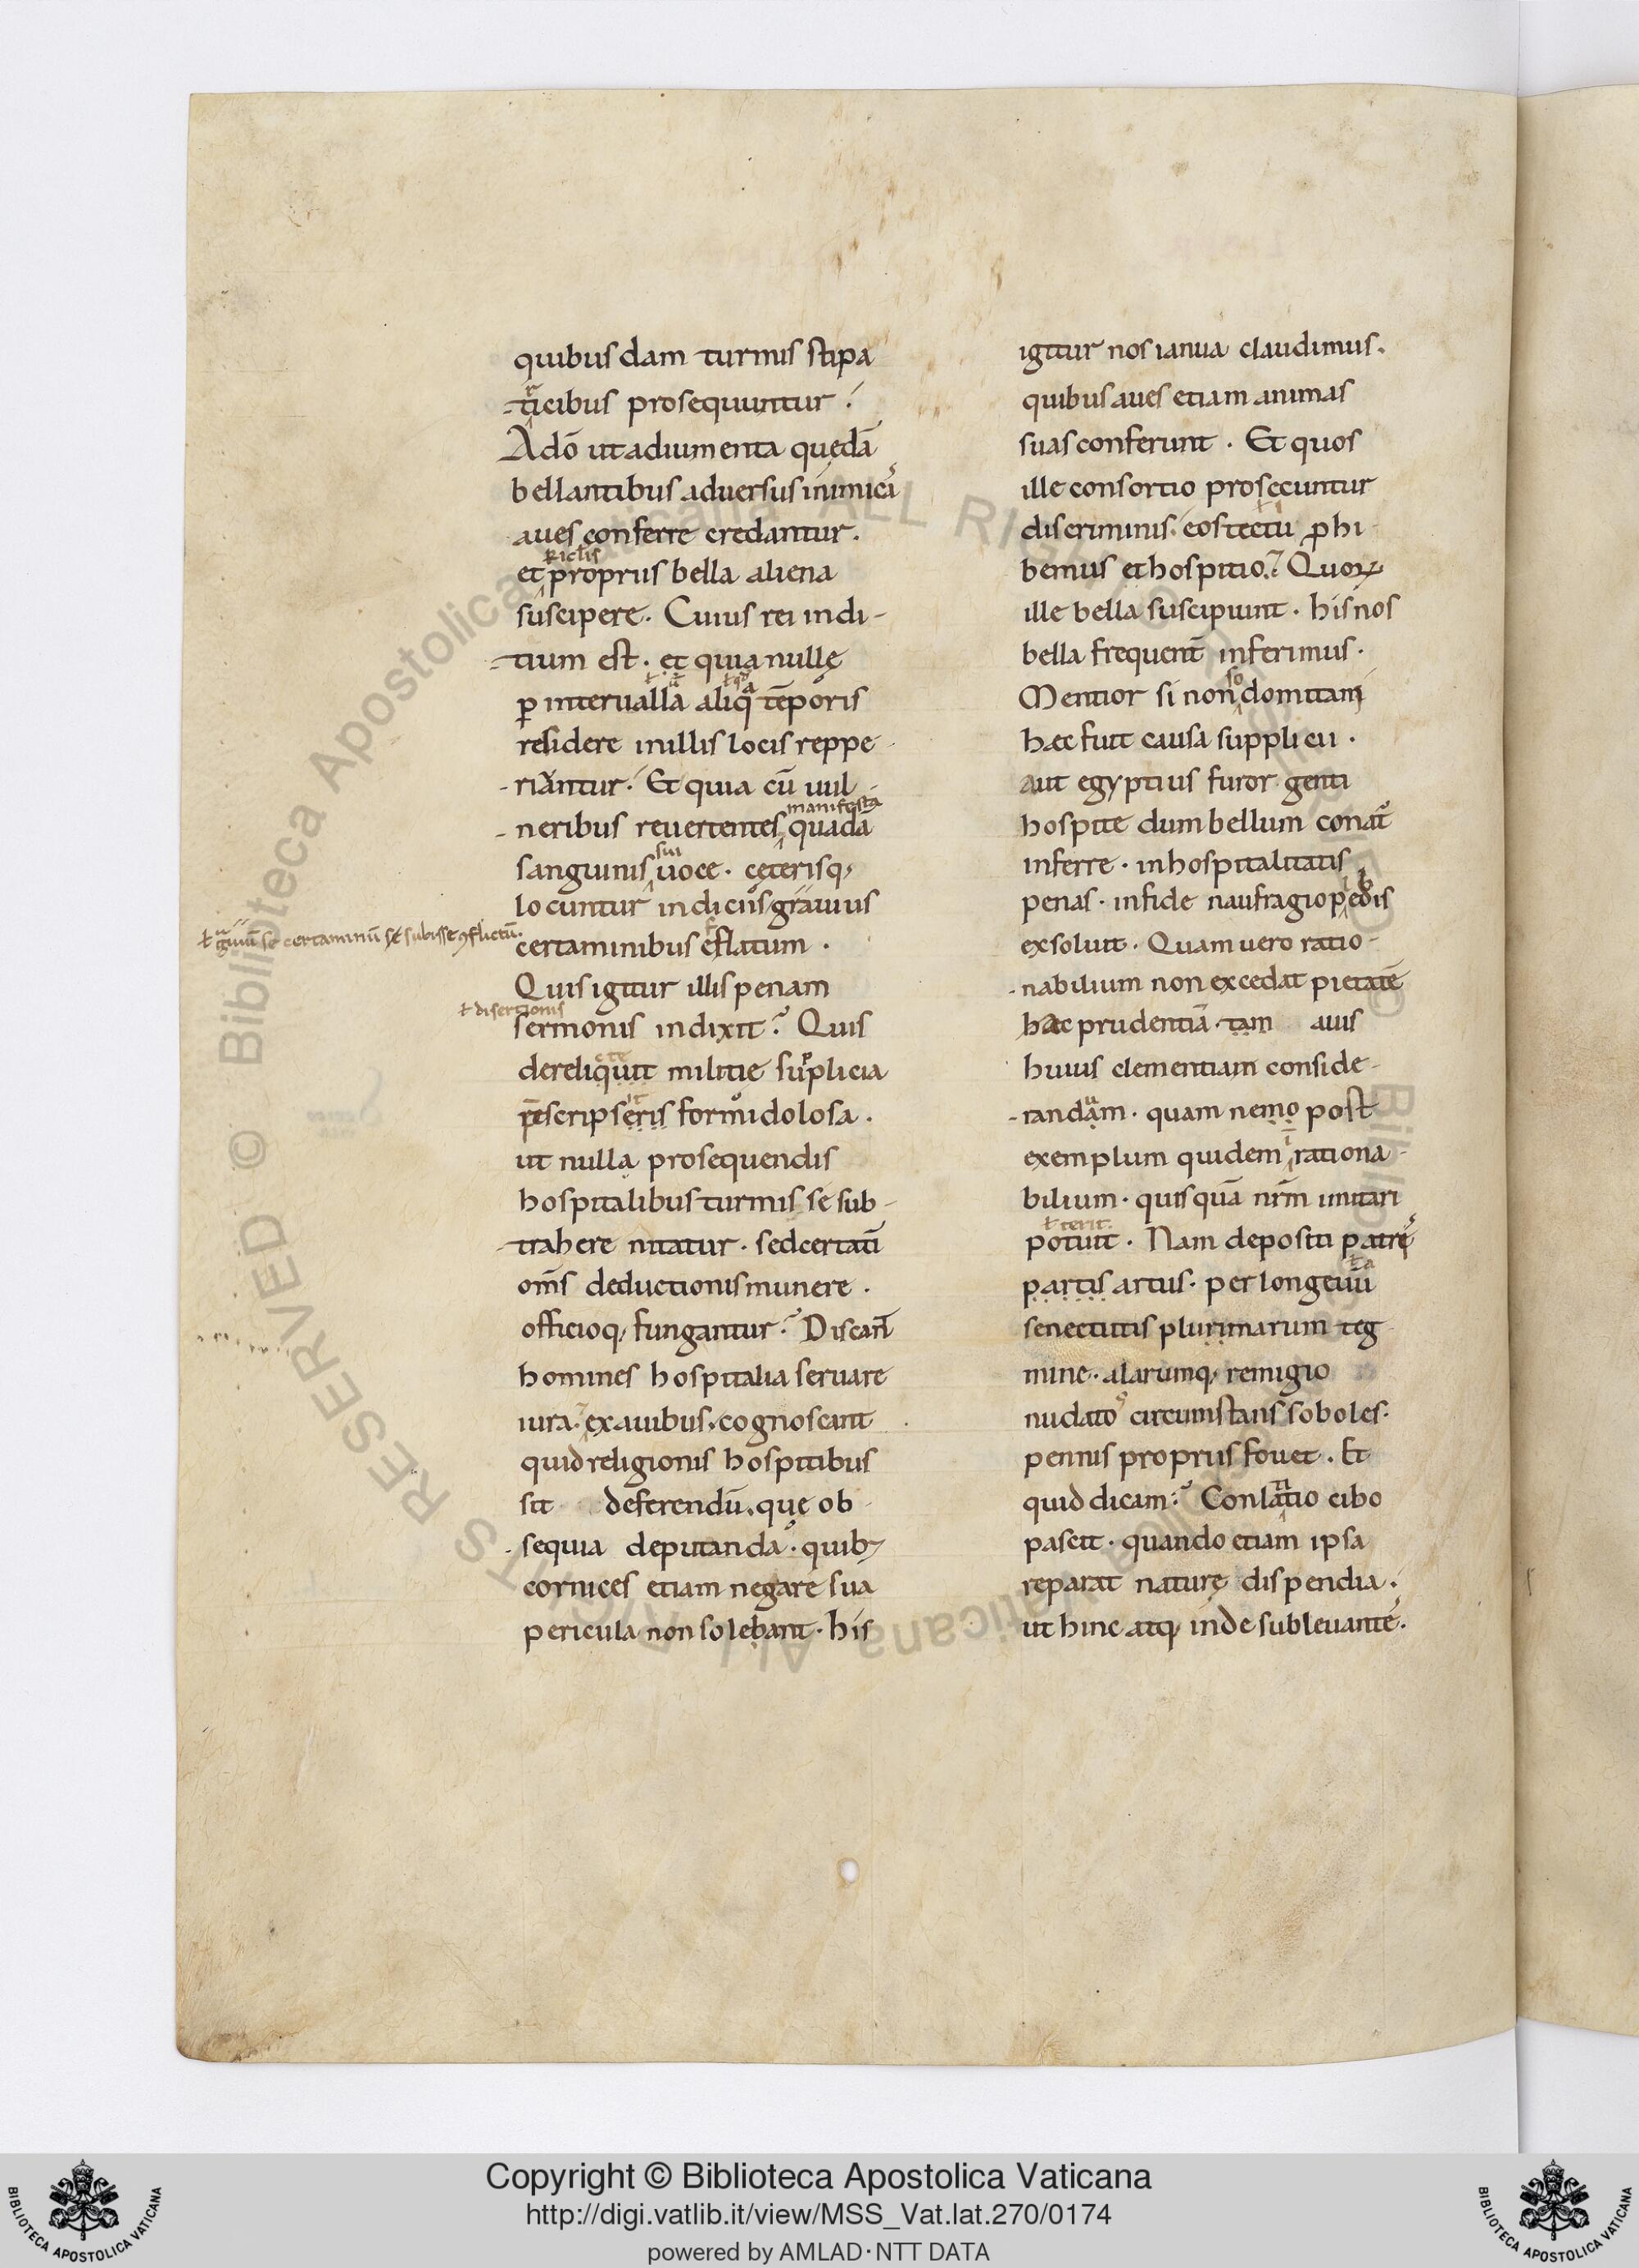 quibus dam turmis stipa
-ticibus prosequuntur.
Adō ut adiumenta quędā
bellantibus aduersus inimici
aues conferre credantur.
ericlis
et propriis bella aliena
suscipere. Cuius rei indi-
-tium est. et quia nullę
ꝑ interualla aliq̄ tēporis
residere in illis locis reppe-
-riantur. Et quia cū uul-
manifesta
-neribus reuertentes quadā
sui
sanguinis uoce. cęterisq;
locuntur indiciis grauius
ł guiū se certaminū se subisse ꝯflictū.
certaminibus eflatum.
Quis igitur illis penam
ł disertionis
sermonis indixit? Quis
dereliquit militie suplicia
rescripseris formidolosa.
ut nulla prosequendis
hospitalibus turmis se sub-
-trahere nitatur. sed certati
oms deductionis munere.
officioq; fungantur? Discant
homines hospitalia seruare
iura. ex auibus. cognoscant
quid religionis hospitibus
sit deferendū. que ob-
-sequia deputanda. quib;
cornices etiam negare sua
pericula non solebant. his
igitur nos ianua claudimus.
quibus aues etiam animas
suas conferunt. Et quos
ille consortio prosecuntur
discriminis. eos tectu ꝓhi-
bemus et hospitio? Quoꝝ
ille bella suscipiunt. his nos
bella frequent inferimus.
so
Mentior si non domitani
hæc fuit causa supplicii.
aut egyptius furor genti
hospite dum bellum conat
inferre. inhospitalitatis
penas. infide naufragio pedis
exsoluit. Quam uero ratio-
-nabilium non excedat pietatē
hæc prudentiā. tam auis
huius clementiam conside-
-randam. quam nemo post
exemplum quidem rationa-
bilium. quisquā nrm imitari
ł terit.
potuit. Nam depositi patris
partis artus. per longeuū
senectutis plurimarum teg-
mine. alarumq; remigio
nudato circumstans soboles.
pennis propriis fouet. Et
quid dicam? Conlatio cibo
pascit. quando etiam ipsa
reparat naturę dispendia.
ut hinc atq; inde subleuante.
Copyright © Biblioteca Apostolica Vaticana
http://digi.vatlib.it/view/MSS_Vat.lat.270/0174
powered by AMLAD·NTT DATA
BIBLIOTECA APOSTOLICA VATICANA
BIBLIOTECA APOSTOLICA VATICANA